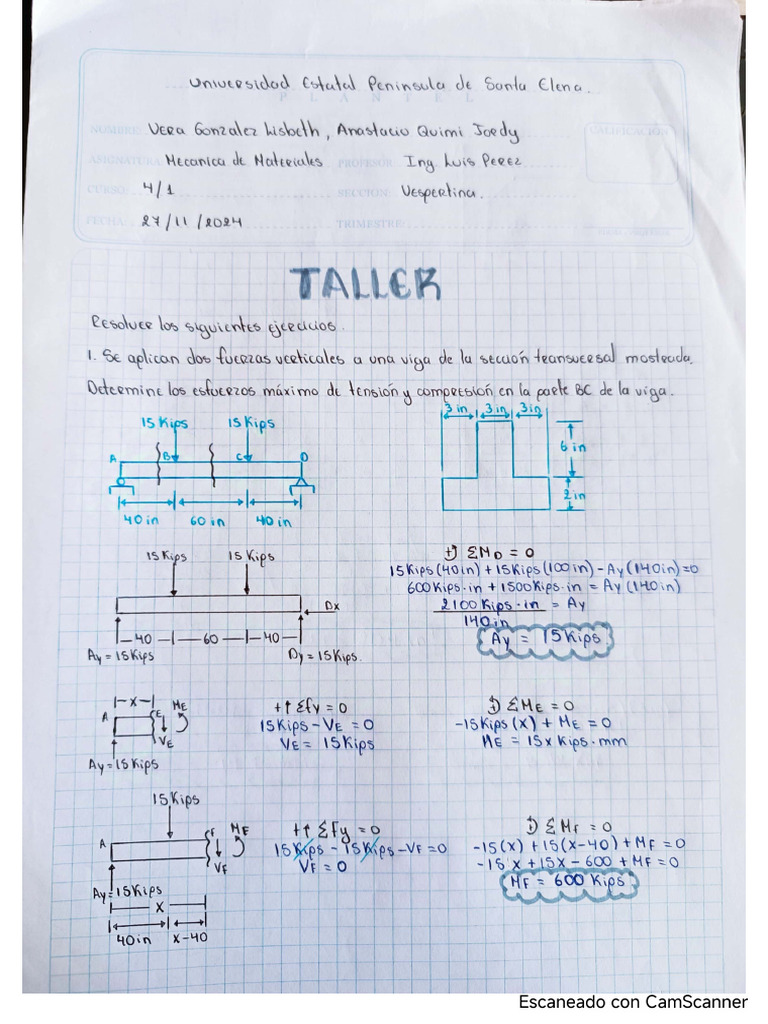 Universidad Estatal Peninsula de Santa Elena.
PLANTEL
NOMBRE: Vera Gonzalez Lisbeth, Anastacio Quimi Joedy
CALIFICACIÓN
ASIGNATURA: Mecanica de Materiales PROFESOR: Ing. Luis Perez
CURSO: 4/1 SECCION: Vespertina.
FECHA: 27/11/2024 TRIMESTRE:
TALLER
Resolver los siguientes ejercicios.
1. Se aplican dos fuerzas verticales a una viga de la sección transversal mostrada.
Determine los esfuerzos máximo de tensión y compresión en la parte BC de la viga.
15 Kips 15 Kips
A B C D
40 in 60 in 40 in
3 in 3 in 3 in
6 in
2 in
15 Kips 15 Kips
Dx
40 60 40
Ay = 15 Kips Dy = 15 Kips.
+) ΣMD = 0
15 Kips (40 in) + 15 Kips (100 in) - Ay (140 in) = 0
600 Kips·in + 1500 Kips·in = Ay (140 in)
2100 Kips·in = Ay
140 in
Ay = 15 Kips
x
A E ME
VE
Ay = 15 Kips
+↑ Σfy = 0
15 Kips - VE = 0
VE = 15 Kips
+) ΣME = 0
-15 Kips (x) + ME = 0
ME = 15x Kips·mm
15 Kips
A F ME
VF
Ay = 15 Kips
x
40 in x-40
+↑ Σfy = 0
15 Kips - 15 Kips - VF = 0
VF = 0
+) ΣMf = 0
-15(x) + 15(x-40) + MF = 0
-15x + 15x - 600 + MF = 0
MF = 600 Kips
Escaneado con CamScanner